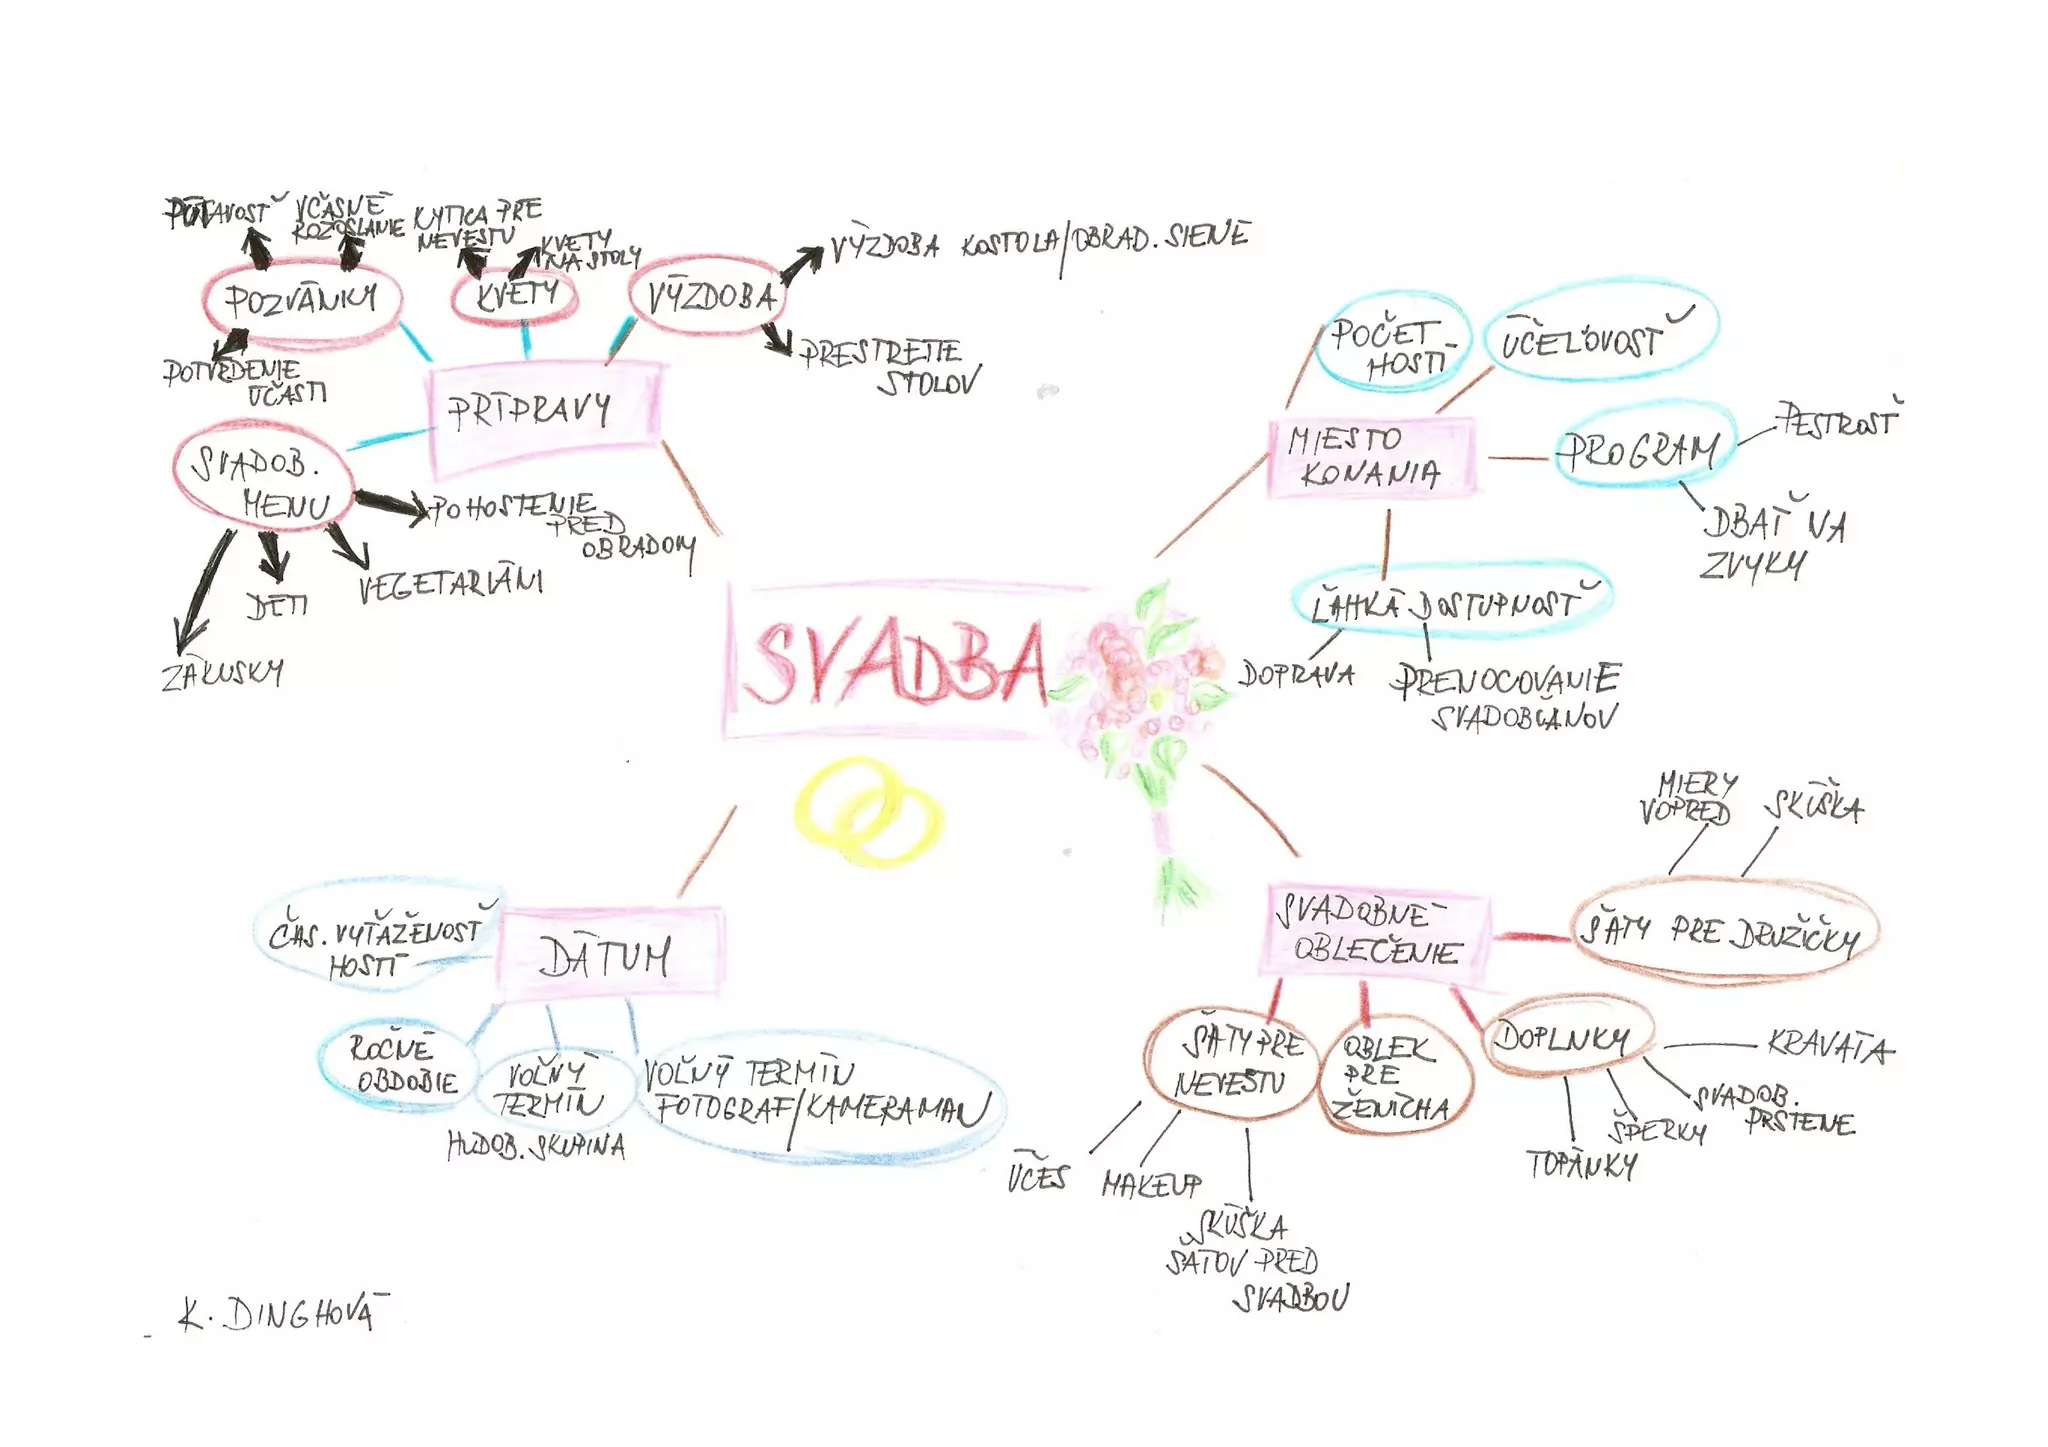 PÚTAVOSŤ
VČASNÉ
ROZOSLANIE
KYTICA PRE
NEVESTU
KVETY
NA STOLY
VÝZDOBA KOSTOLA/OBRAD. SIENE
POZVÁNKY
KVETY
VÝZDOBA
POTVRDENIE
ÚČASTI
PRESTRETIE
STOLOV
PRÍPRAVY
SVADOB.
MENU
POHOSTENIE
PRED
OBRADOM
VEGETARIÁNI
DETI
ZÁKUSKY
POČET
HOSTÍ
ÚČEĽOVOSŤ
MIESTO
KONANIA
PROGRAM
PESTROSŤ
DBAŤ NA
ZVYKY
ĽAHKÁ DOSTUPNOSŤ
DOPRAVA
PRENOCOVANIE
SVADOBČANOV
SVADBA
ČAS. VYŤAŽENOSŤ
HOSTÍ
DÁTUM
ROČNÉ
OBDOBIE
VOĽNÝ
TERMÍN
HUDOB. SKUPINA
VOĽNÝ TERMÍN
FOTOGRAF/KAMERAMAN
MIERY
VOPRED
SKÚŠKA
SVADOBNÉ
OBLEČENIE
ŠATY PRE DRUŽIČKY
ŠATY PRE
NEVESTU
OBLEK
PRE
ŽENÍCHA
DOPLNKY
KRAVATA
SVADOB.
PRSTENE
ŠPERKY
TOPÁNKY
ÚČES
MAKEUP
SKÚŠKA
ŠATOV PRED
SVADBOU
K. DINGHOVÁ